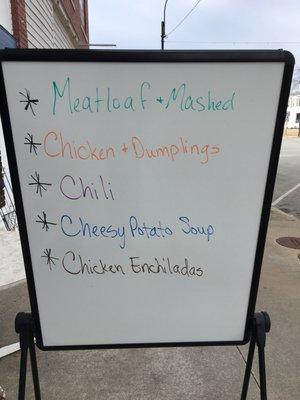 * Meatloaf + Mashed
* Chicken + Dumplings
* Chili
* Cheesy Potato Soup
* Chicken Enchiladas